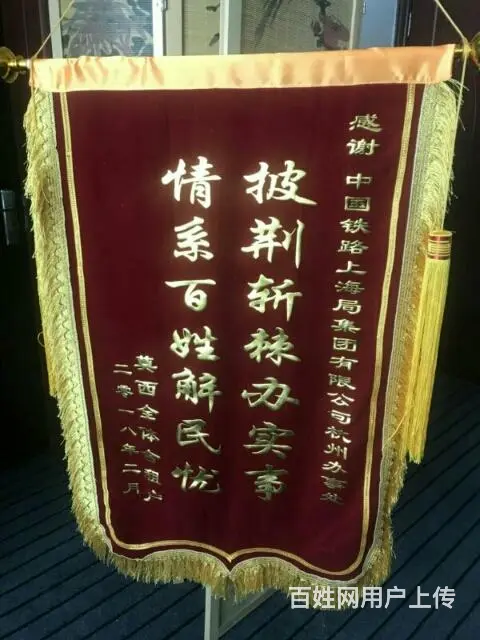 感谢 中国铁路上海局集团有限公司杭州办事处
披荆斩棘办实事
情系百姓解民忧
莫西全体合租户
二零一八年二月
百姓网用户上传